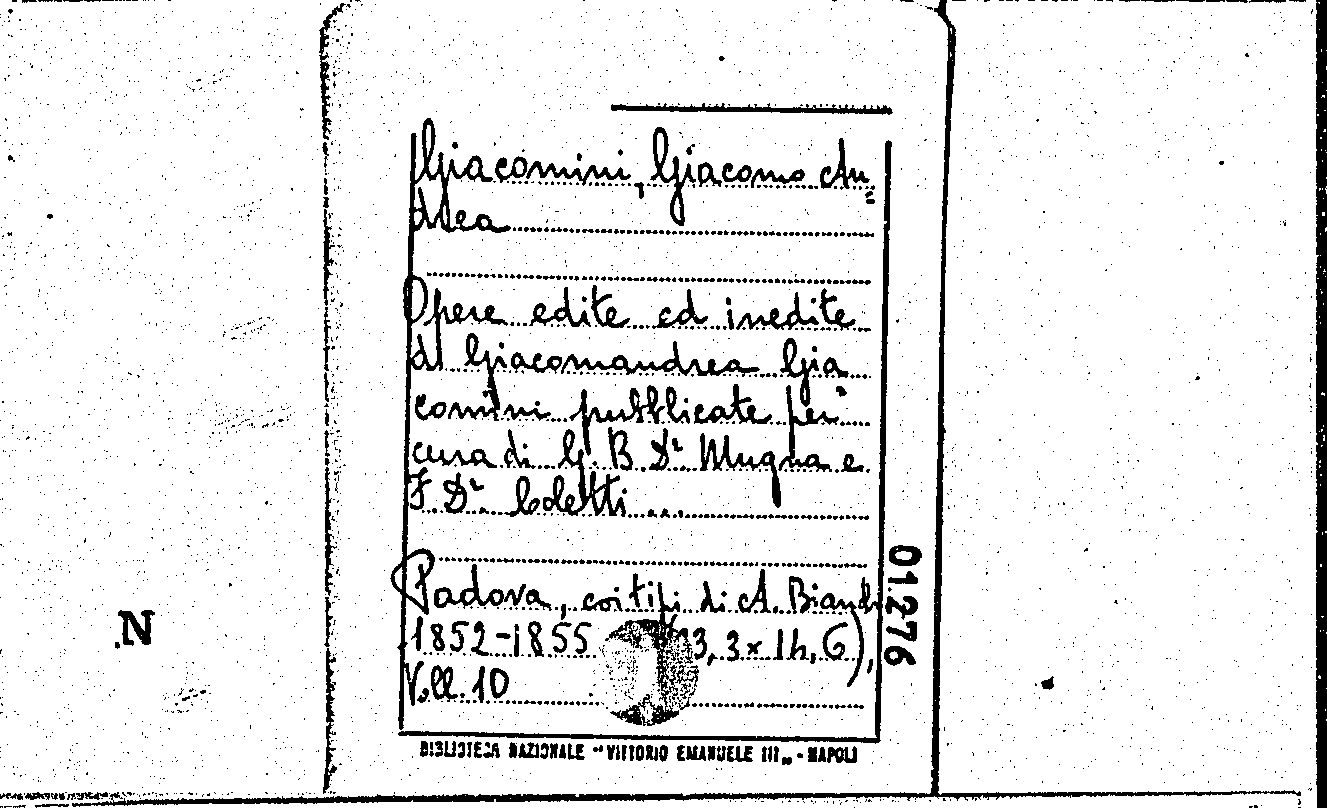 Giacomini, Giacomo An=
drea
Opere edite ed inedite
di Giacomandrea Gia
comini pubblicate per
cura di G. B. Dr Mugna e
F. Dr Coletti ...
Padova, coi tipi di A. Bianchi
1852-1855 3,3 x 14,6),
Voll. 10
BIBLIOTECA NAZIONALE "VITTORIO EMANUELE III„ - NAPOLI
01276
N